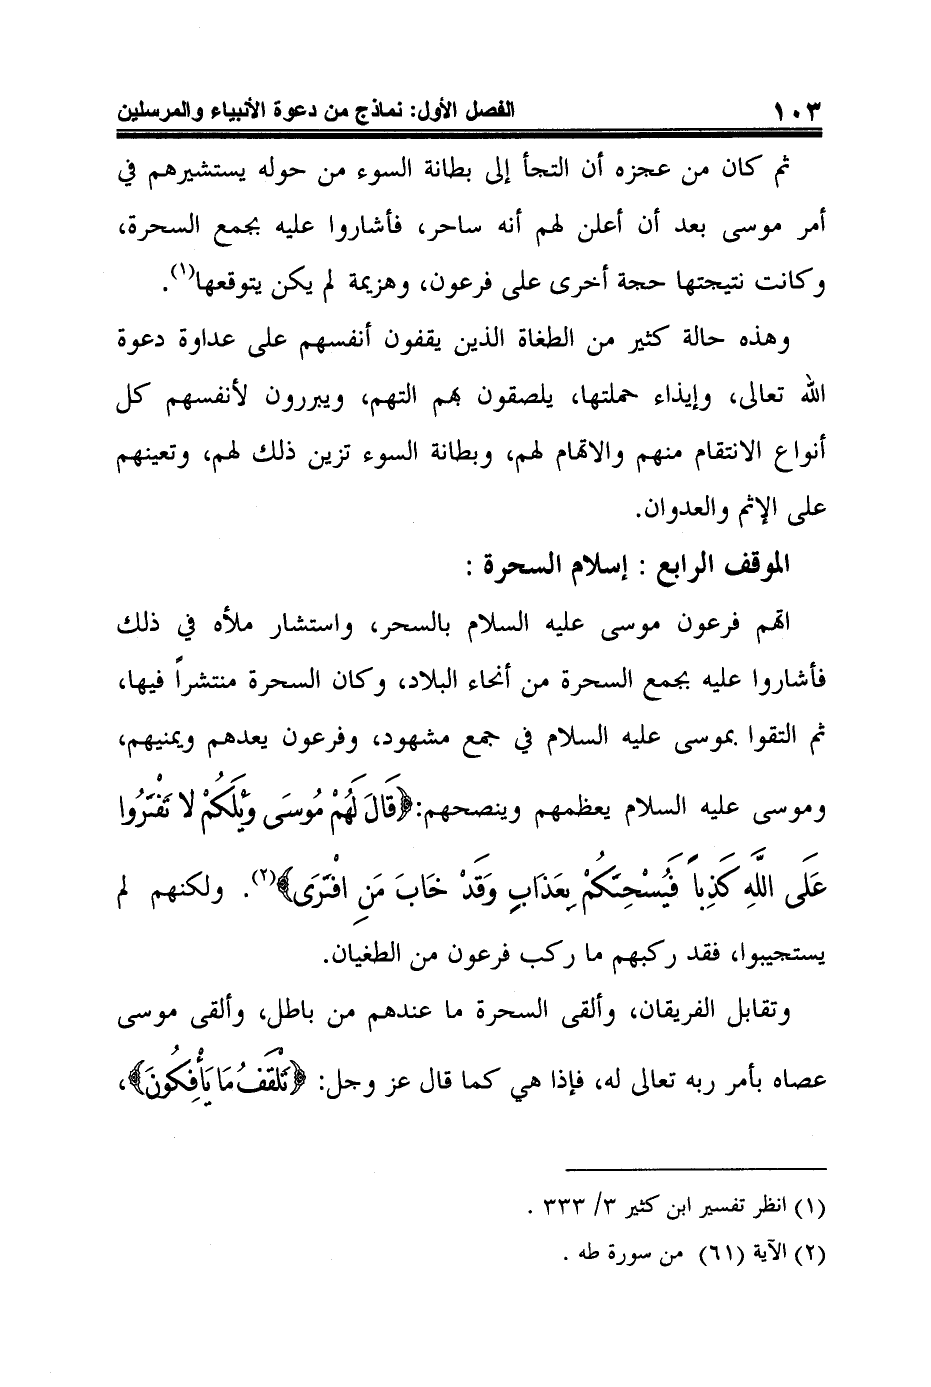 ١٠٣ الفصل الأول: نماذج من دعوة الأنبياء والمرسلين
ثم كان من عجزه أن التجأ إلى بطانة السوء من حوله يستشيرهم في
أمر موسى بعد أن أعلن لهم أنه ساحر، فأشاروا عليه بجمع السحرة،
وكانت نتيجتها حجة أخرى على فرعون، وهزيمة لم يكن يتوقعها(١).
وهذه حالة كثير من الطغاة الذين يقفون أنفسهم على عداوة دعوة
الله تعالى، وإيذاء حملتها، يلصقون بهم التهم، ويبررون لأنفسهم كل
أنواع الانتقام منهم والاتهام لهم، وبطانة السوء تزين ذلك لهم، وتعينهم
على الإثم والعدوان.
الموقف الرابع : إسلام السحرة :
اتهم فرعون موسى عليه السلام بالسحر، واستشار ملأه في ذلك
فأشاروا عليه بجمع السحرة من أنحاء البلاد، وكان السحرة منتشراً فيها،
ثم التقوا بموسى عليه السلام في جمع مشهود، وفرعون يعدهم ويمنيهم،
وموسى عليه السلام يعظمهم وينصحهم:﴿قَالَ لَهُمْ مُوسَى وَيْلَكُمْ لا تَفْتَرُوا
عَلَى اللَّهِ كَذِباً فَيُسْحِتَكُمْ بِعَذَابٍ وَقَدْ خَابَ مَنِ افْتَرَى﴾(٢). ولكنهم لم
يستجيبوا، فقد ركبهم ما ركب فرعون من الطغيان.
وتقابل الفريقان، وألقى السحرة ما عندهم من باطل، وألقى موسى
عصاه بأمر ربه تعالى له، فإذا هي كما قال عز وجل: ﴿تَلْقَفُ مَا يَأْفِكُونَ﴾،
(١) انظر تفسير ابن كثير ٣/ ٣٣٣ .
(٢) الآية (٦١) من سورة طه .